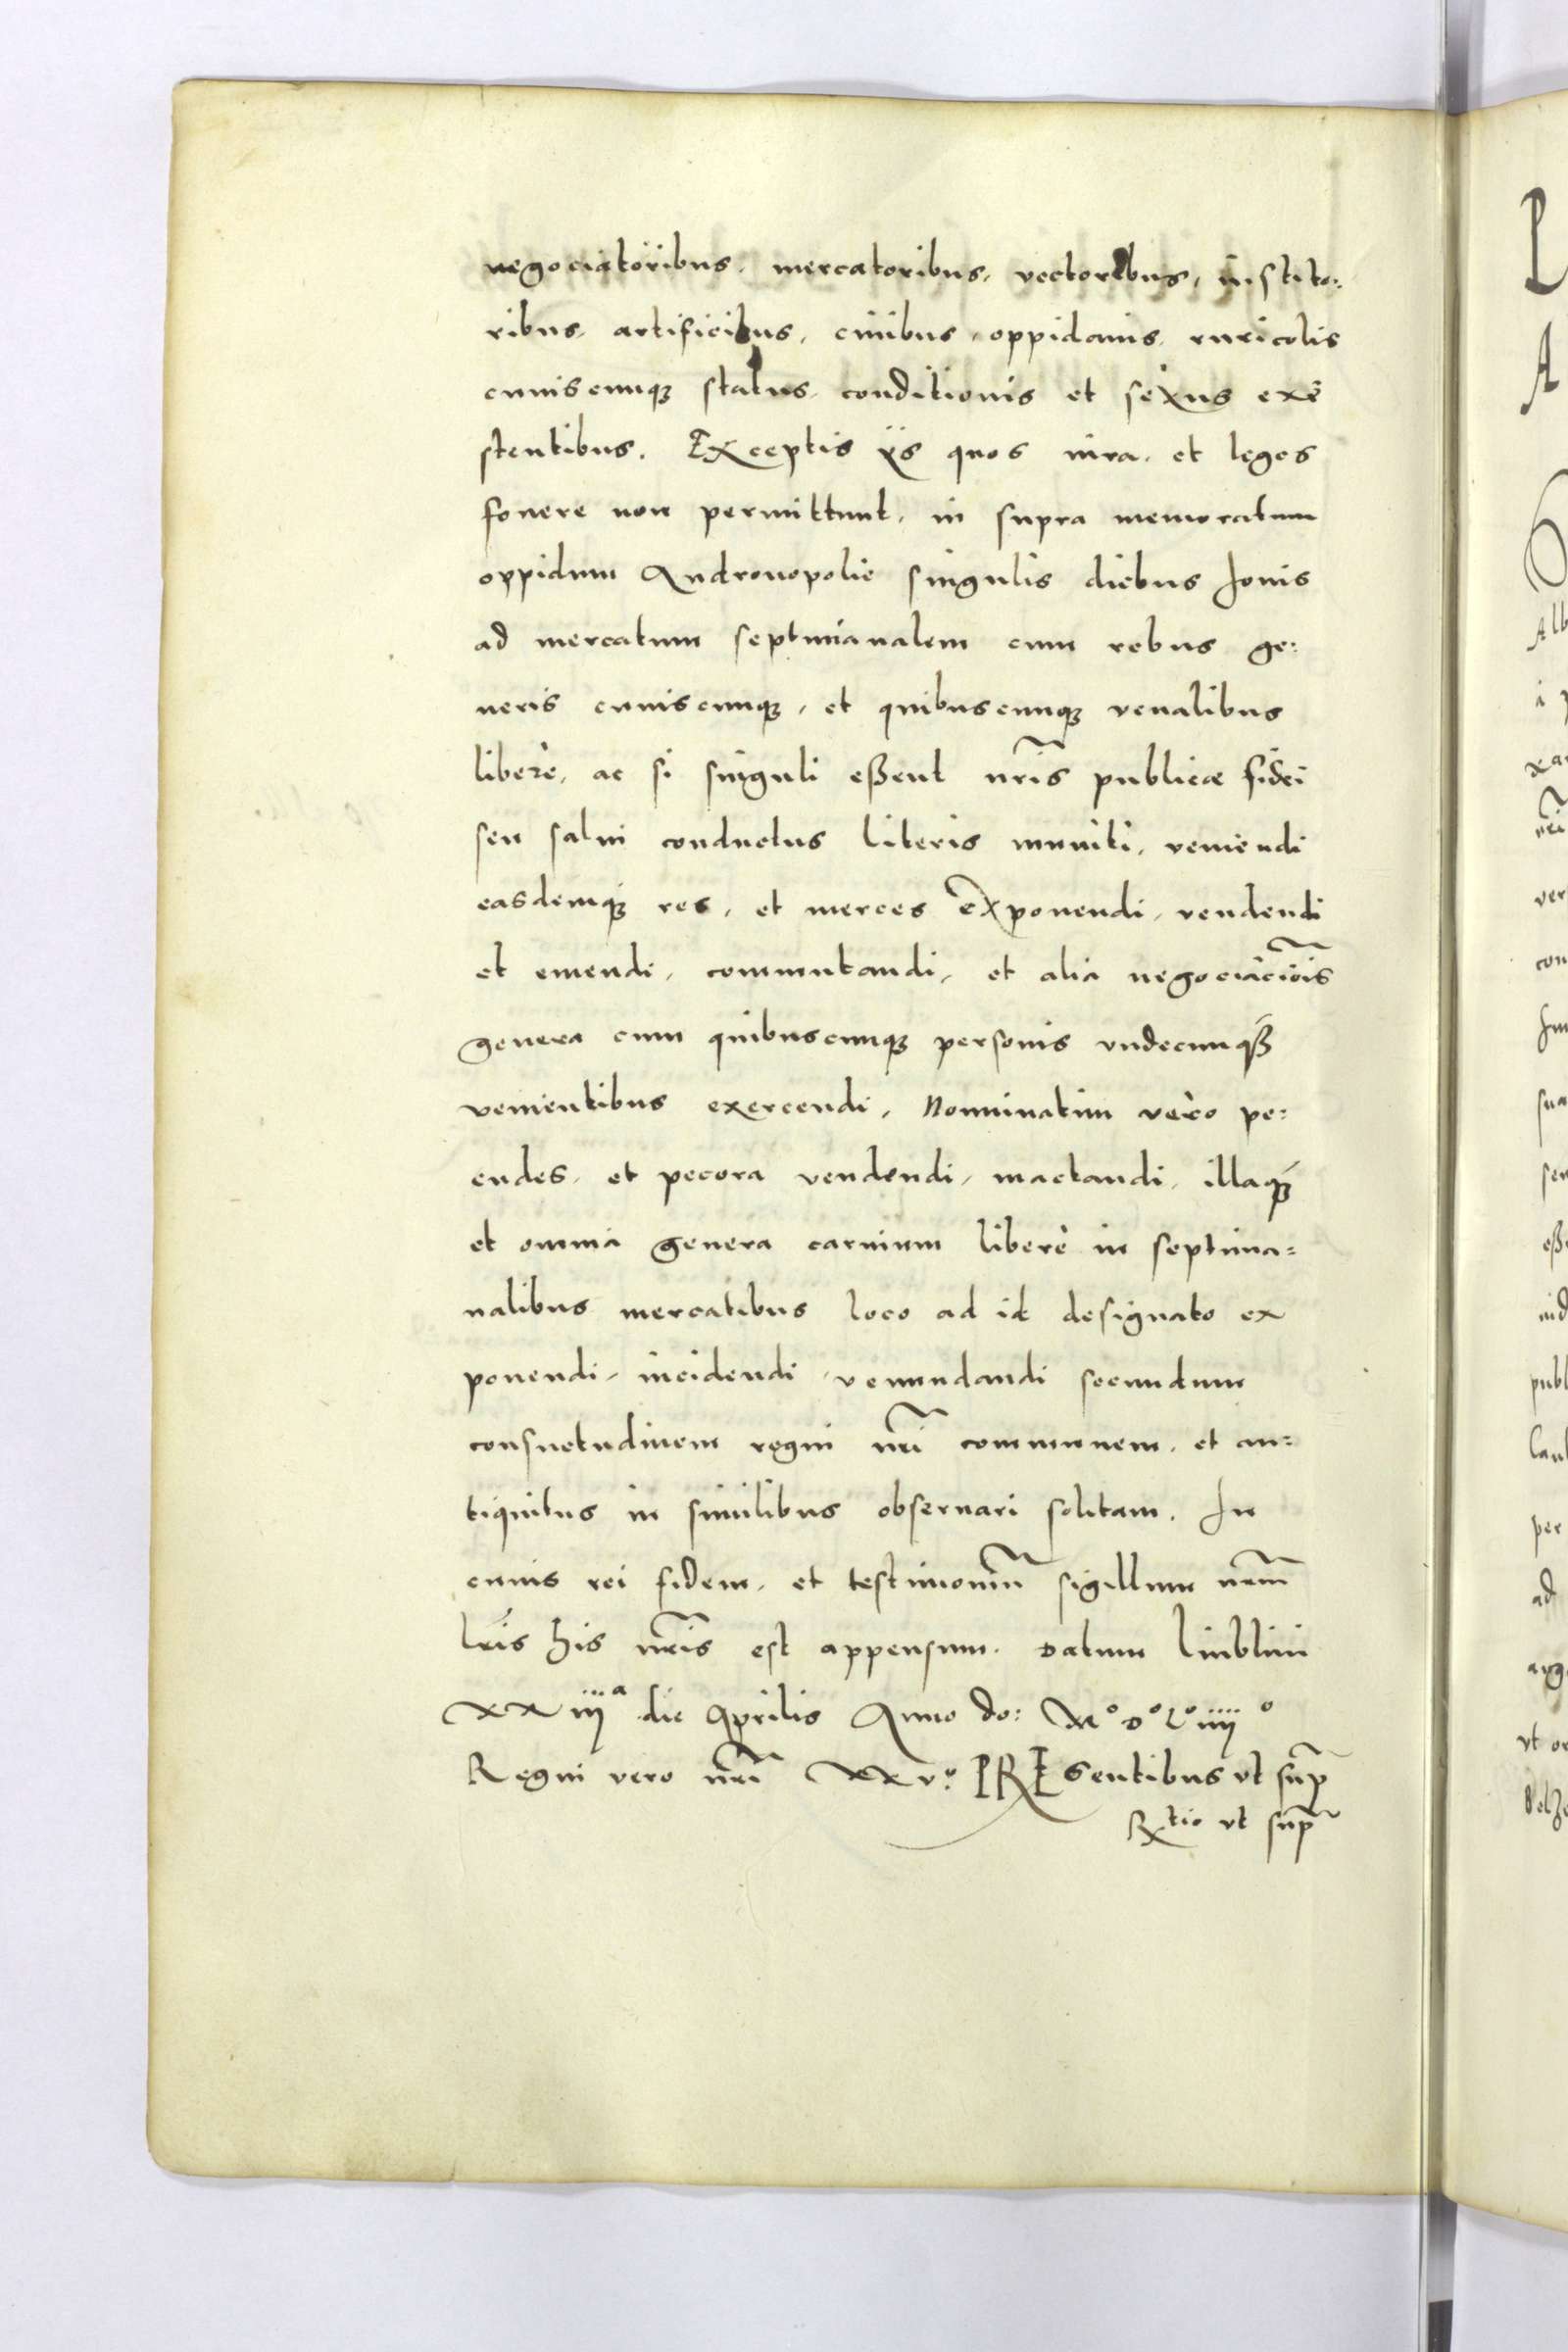 negociatoribus, mercatoribus, vectoribus, instito:
ribus, artificibus, ciuibus, oppidanis, ruricolis
cuiuscunq; status, conditionis et sexus exi
stentibus. Exceptis ijs quos iura, et leges
fouere non permittunt, in supra memoratum
oppidum Andronopolie singulis diebus Iouis
ad mercatum septimanalem cum rebus ge:
neris cuiuscunq;, et quibuscunq; venalibus
libere, ac si singuli eßent nr̃is publicæ fidei
seu salui conductus literis muniti, veniendi
easdemq; res, et merces exponendi, vendendi
et emendi, commutandi, et alia negociaciõis
genera cum quibuscunq; personis vndecunq;
venientibus exercendi, Nominatim vero pe:
cudes, et pecora vendendi, mactandi, illaq;
et omnia genera carnium libere in septima=
nalibus mercatibus loco ad id designato ex
ponendi, incidendi, venundandi secundum
consuetudinem regni nr̃i communem, et an=
tiquitus in similibus obseruari solitam. In
cuius rei fidem, et testimoniũ sigillum nr̃m
lr̃is his nr̃is est appensum. Datum Liublini
XXiijª die Aprilis Anno do: Mº Dº Lº iiijº
Regni vero nr̃i XXvº. PREsentibus vt sup̃
Rtio vt sup̃